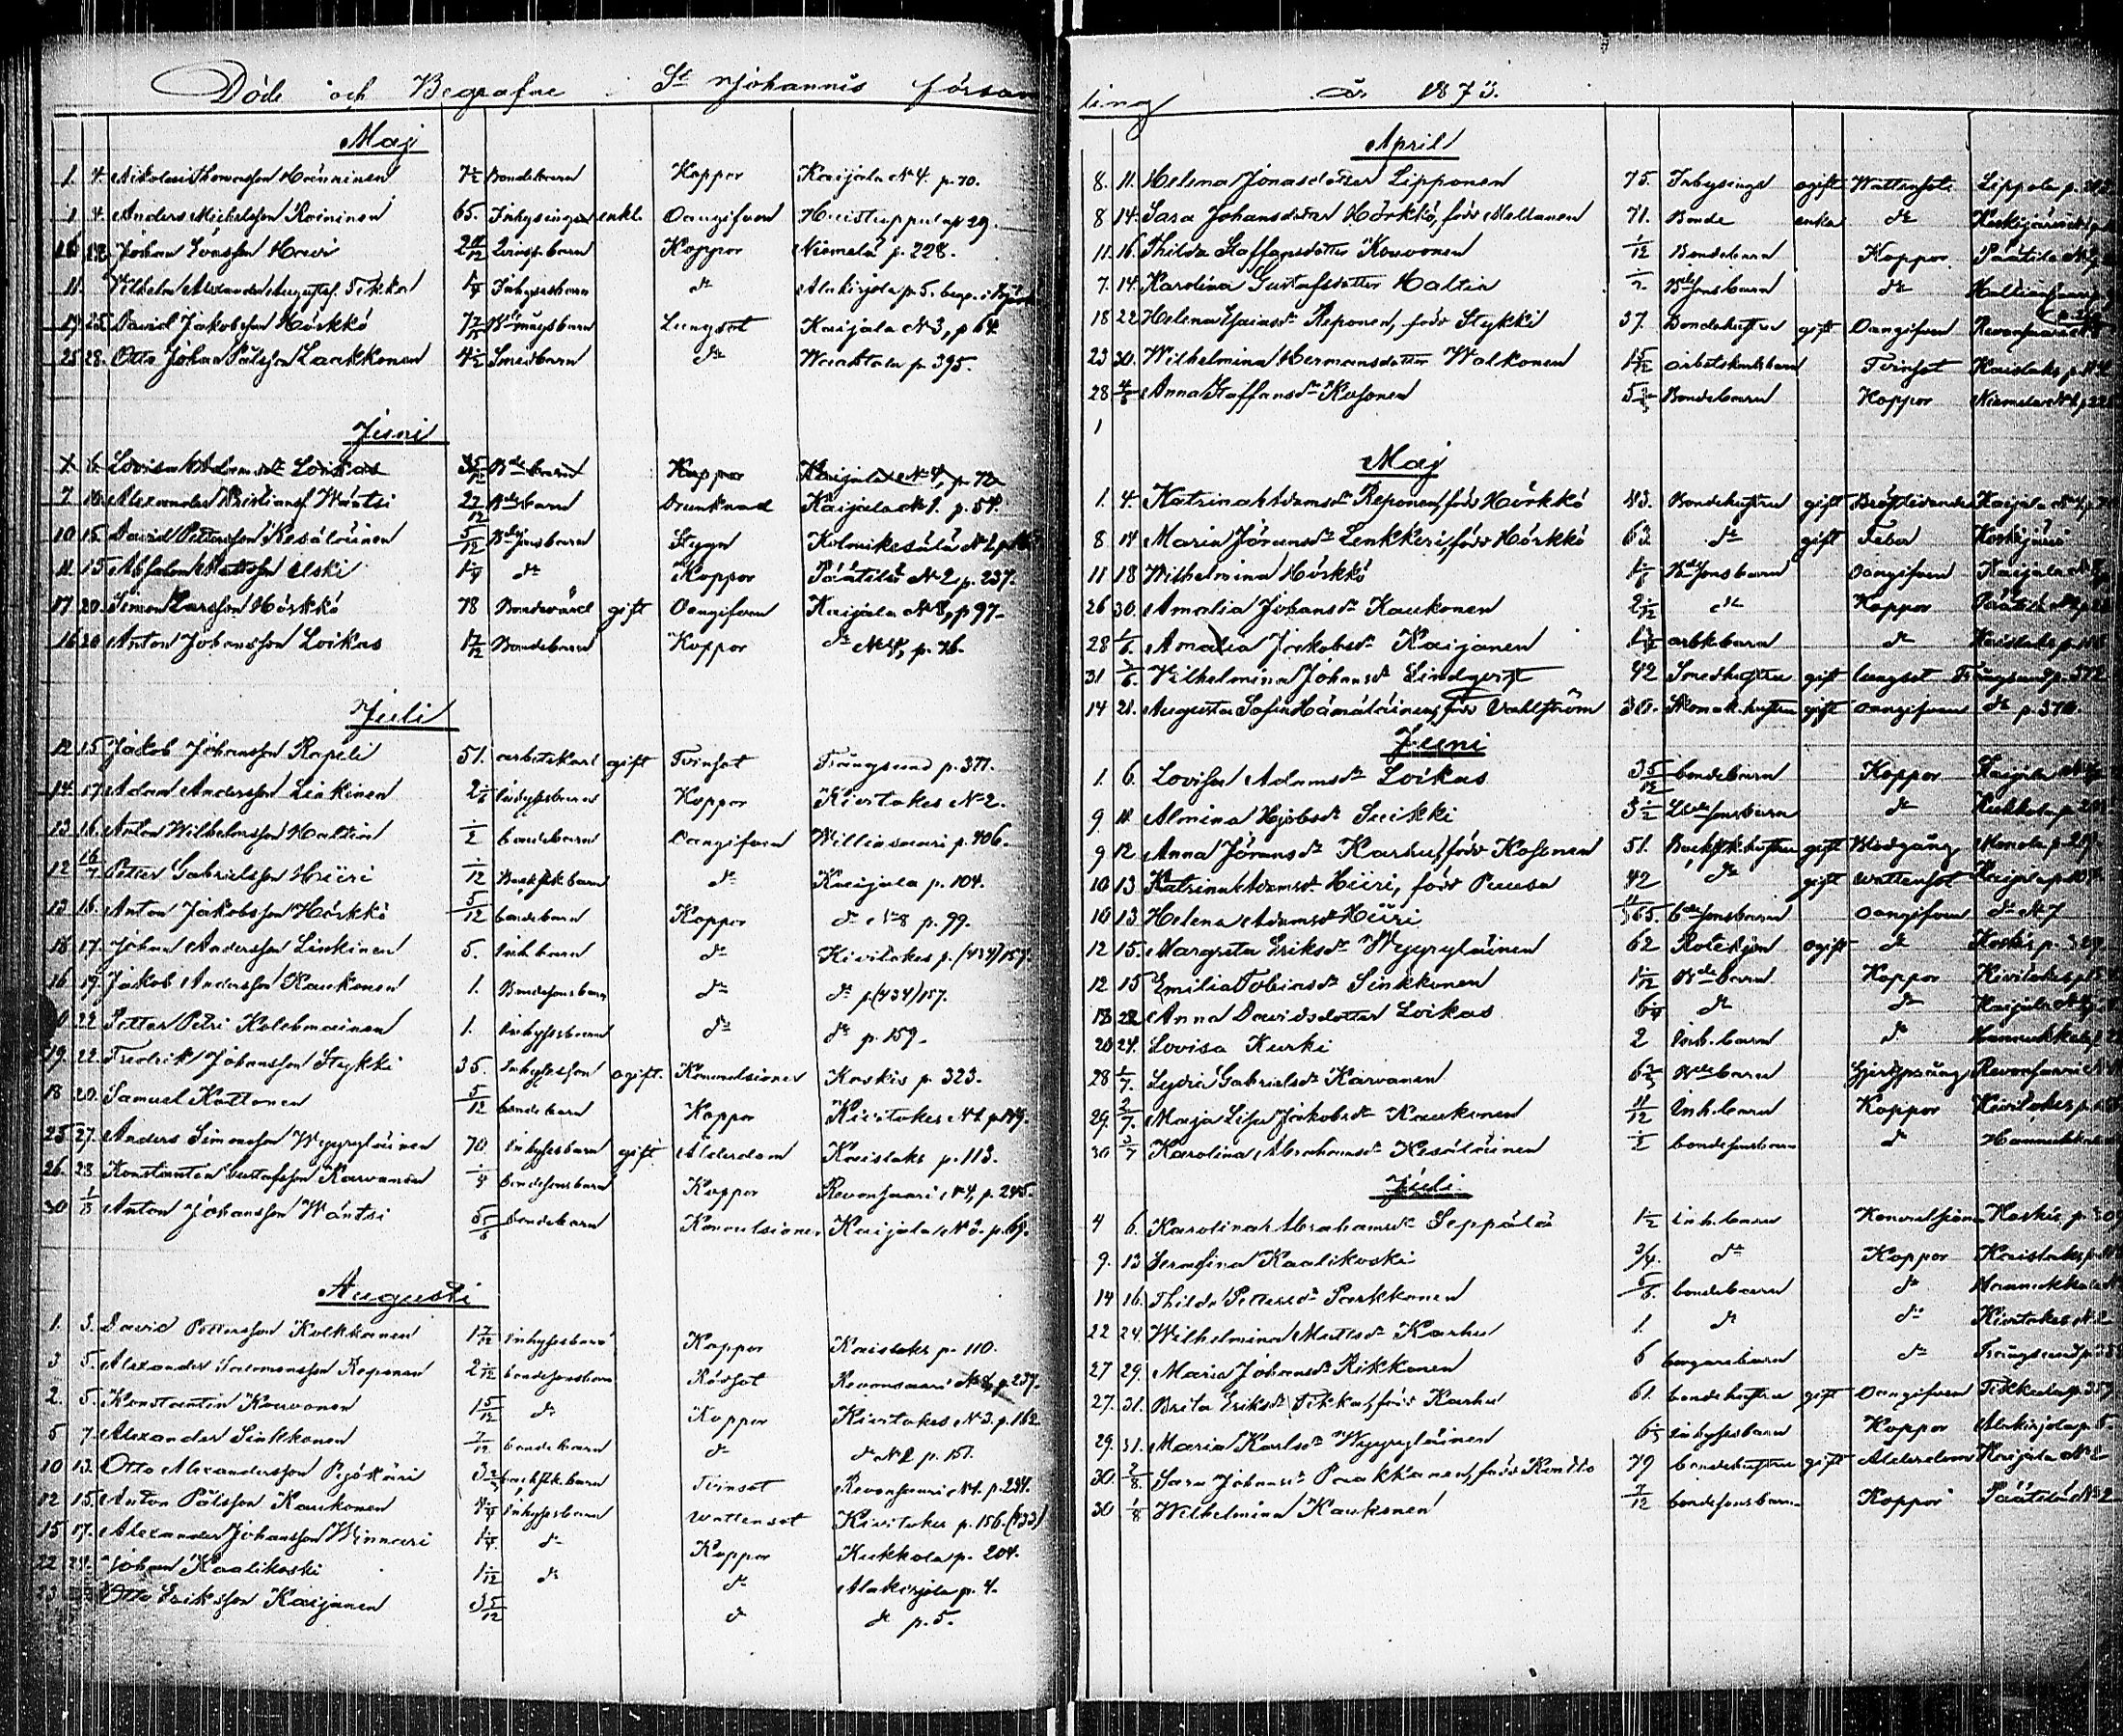 Döde och Begrafne i St Johannis försam
Maj
1. 4. Nikolai Thomasson Hänninen 7 1/2 Bondebarn Koppor Kaijala N 4. p. 70.
1 4. Anders Mickelsson Roininen 65. Inhysinge enkl. Oangifven p 29.
Johan 2 11/12 Koppor Niemelä p. 228.
11. Vilhelm Alexander Augustsf. Tikka 1/4 Inhysesbarn dto Alakirjola p. 5.
19 25. David Jakobsson Hörkkö Lungsot Kaijala N 3, p 64
25 28. Otto Johan Pålsson Laukkonen 4 1/2 Smedbarn dto p. 395.
Juni
6. Lovisa Adamsdr Loikas 3 5/12 Bdebarn Koppor Kaijala N 4, p. 72
7 Alexander Kristiansf. Wäntsi Bdebarn Drunknad Kaijala N 1. p. 54.
10 15. David Pettersson Kesäläinen 5/12 Bdesonsbarn Stygn
11. 15 Absalon Mattsson Ilski 1 1/4 dto Koppor Päätilä N 2 p. 237.
17 20. Simon Larsson Hörkkö 78 Bondevärd gift Oangifven Kaijala N 8, p 97
16 20 Anton Johansson Loikas 1 7/12 Bondebarn Koppor dto N 4, p. 76.
Juli
12 15 Jakob Johansson Rapeli 51. arbetskarl gift Tvinsot Trångsund p. 377.
14. 17 Adam Andersson Liukinen 2 1/6 inhysesbarn Koppor Kiurlakes N 2.
13 16. Anton Wilhelmsson Haltia 1/2 bondebarn Oangifven p. 406.
12 16/7 Petter Gabrielsson Hiiri 1/12 dto Kaijala p. 104.
13 16. Anton Jakobsson Hörkkö 5/12 bondebarn Koppor dto N 8 p. 99.
17. Johan Andersson Liukinen 5. Inh. barn dto p. (434) 157.
16 19. Jakob Andersson Kaukonen 1. Bondesonsbarn dto dto p (434) 157.
22 Petter Petri Kolehmainen 1. inhysesbarn dto dto p. 159.
19. 22 Fredrik Johansson Stykki 35. Inhyseson ogift. Konvulsioner Koskis p. 323.
18 20. Samuel Kattonen 5/12 bondebarn Koppor
25 27. Anders Simonsson Wyyryläinen 70. inhysesbarn gift Ålderdom Kaislaks p. 113.
26. 28 Konstantin Gustafsson Karvanen 1/4 bondesonsbarn Koppor Revonsaari N 4, p. 245.
30 1/8 Anton Johansson Wäntsi 5/6 bondebarn Konvulsioner Kaijala N 3. p. 69.
Augusti
1. 3. David Pettersson Kolkkanen 1 7/12 inhysesbarn Koppor Kaislaks p. 110.
3 5. Alexander Salomonsson Reponen 2 1/12 bondesonsbarn Rödsot Revonsaari N 4, p. 237.
2. 5. Konstantin Kouvonen 1 5/12 dto Koppor N 3. p. 162
5 7. Alexander Sinkkonen 7/12 bondebarn dto dto N 2 p. 151.
10 13. Otto Alexandersson Tvinsot Revonsaari N 1. p. 234.
12 15. Anton Pålsson Kaukonen inhysesbarn Wattensot p. 156. (433)
15 17. Alexander Johansson Winnari 1 1/4 dto Koppor Kukkola p. 204.
22 24. Johan Kaalikoski 1 1/12 dto dto Alakirjola p. 4.
23 Otto Eriksson Kaijanen 3 5/12 dto dto p. 5.
ling år 1873.
April
8. 11. Helena Jonasdotter Lipponen 75. Inhysinge ogift Wattensot Lippola
8 14. Sara Johansdotter Hörkkö, född Mellanen 71. Bonde enka dto
11. 16. Thilda Staffansdotter Kouvonen 1/12 Bondebarn Koppor Päätilä
7. 14. Karolina Gustafsdotter Haltia Bdesonsbarn dto
18 22 Helena Esaiasdr Reponen, född Stykki 37. Bondehustru gift Oangifven Revonsaari
23 30. Wilhelmina Hermansdotter Walkonen arbetskarlsbarn Tvinsot Kaislaks
28 4/5 Anna Staffansdr Kosonen Bondebarn Koppor Niemelä
1
Maj
1. 4. Katrina Adamsdr Reponen, född Hörkkö 43. Bondehustru gift Kaijala
8 14 Maria Jöransdr Lenkkeri, född Hörkkö 63 dto gift Feber
11 18 Wilhelmina Hörkkö Bdesonsbarn Oangifven Kaijala
26 30. Amalia Johansdr Kaukonen 2 1/12 dto Koppor Päätilä
28 1/6. Amalia Jakobsdr Kaijanen arbk. barn dto Kaislaks
31 3/6. Vilhelmina Johansdr Lindqvist 42 Smedhustru gift lungsot Trångsund p. 372
14 21. Augusta Sofia Hämäläinen, född Vahlström 30. hustru gift oangifven dto p. 370
Juni
1. 6. Lovisa Adamsdr Loikas 3 5/12 bondebarn Koppor Kaijala
9. 11. Almina Suikki 3 1/2 dto Kukkola
9 12 Anna Jöransdr Karhu, född Kosonen 51. hustru gift Blodgång
10 13 Katrina Adamsdr Hiiri, född Puusa 42 dto gift Wattensot Kaijala p. 104
10 13 Helena Adamsdr Hiiri bdesonsbarn oangifven dto N 7
12 15. Margreta Eriksdr Wyyryläinen 62 Rotehjon ogift dto Koskis p. 329
12 15 Emilia Tobiasdr Sinkkonen 1 1/12 Bdebarn Koppor
18 22 Anna Davidsdotter Loikas 6 1/4 dto dto Kaijala
20 24. Lovisa Kurki 2 Inh. barn dto
28 1/7. Lydia Gabrielsdr Karvanen Bdebarn Revonsaari
29. 2/7. Maja Lisa Jakobsdr Kaukonen 11/12 Inh. barn Koppor
30 3/7 Karolina Abrahamsdr Kesäläinen 1/2 bondesonsbarn dto
Juli
4 6. Karolina Abrahamsdr Seppälä 1 1/2 inh. barn Konvulsion Koskis
9. 13 Serafina Kaalikoski 3/4. dto Koppor Kaislaks
14 16. Thilda Pettersdr Parkkonen 5/6. bondebarn dto
22 24. Wilhelmina Mattsdr Karhu 1. dto dto
27 29. Maria Johansdr Rikkonen 6 borgarebarn dto Trångsund
27. 31. Brita Eriksdr Tikka, född Karhu 61. bondehustru gift Oangifven Tikkala p. 357
29. 31. Maria Karlsdr Wyyryläinen inhysesbarn Koppor Alakirjola p. 5
30. 2/8. Sara Johansdr Paakkanen, född 79 bondehustru gift Ålderdom Kaijala
30 1/8 Wilhelmina Kaukonen 7/12 bondesonsbarn Koppor Päätilä N 2